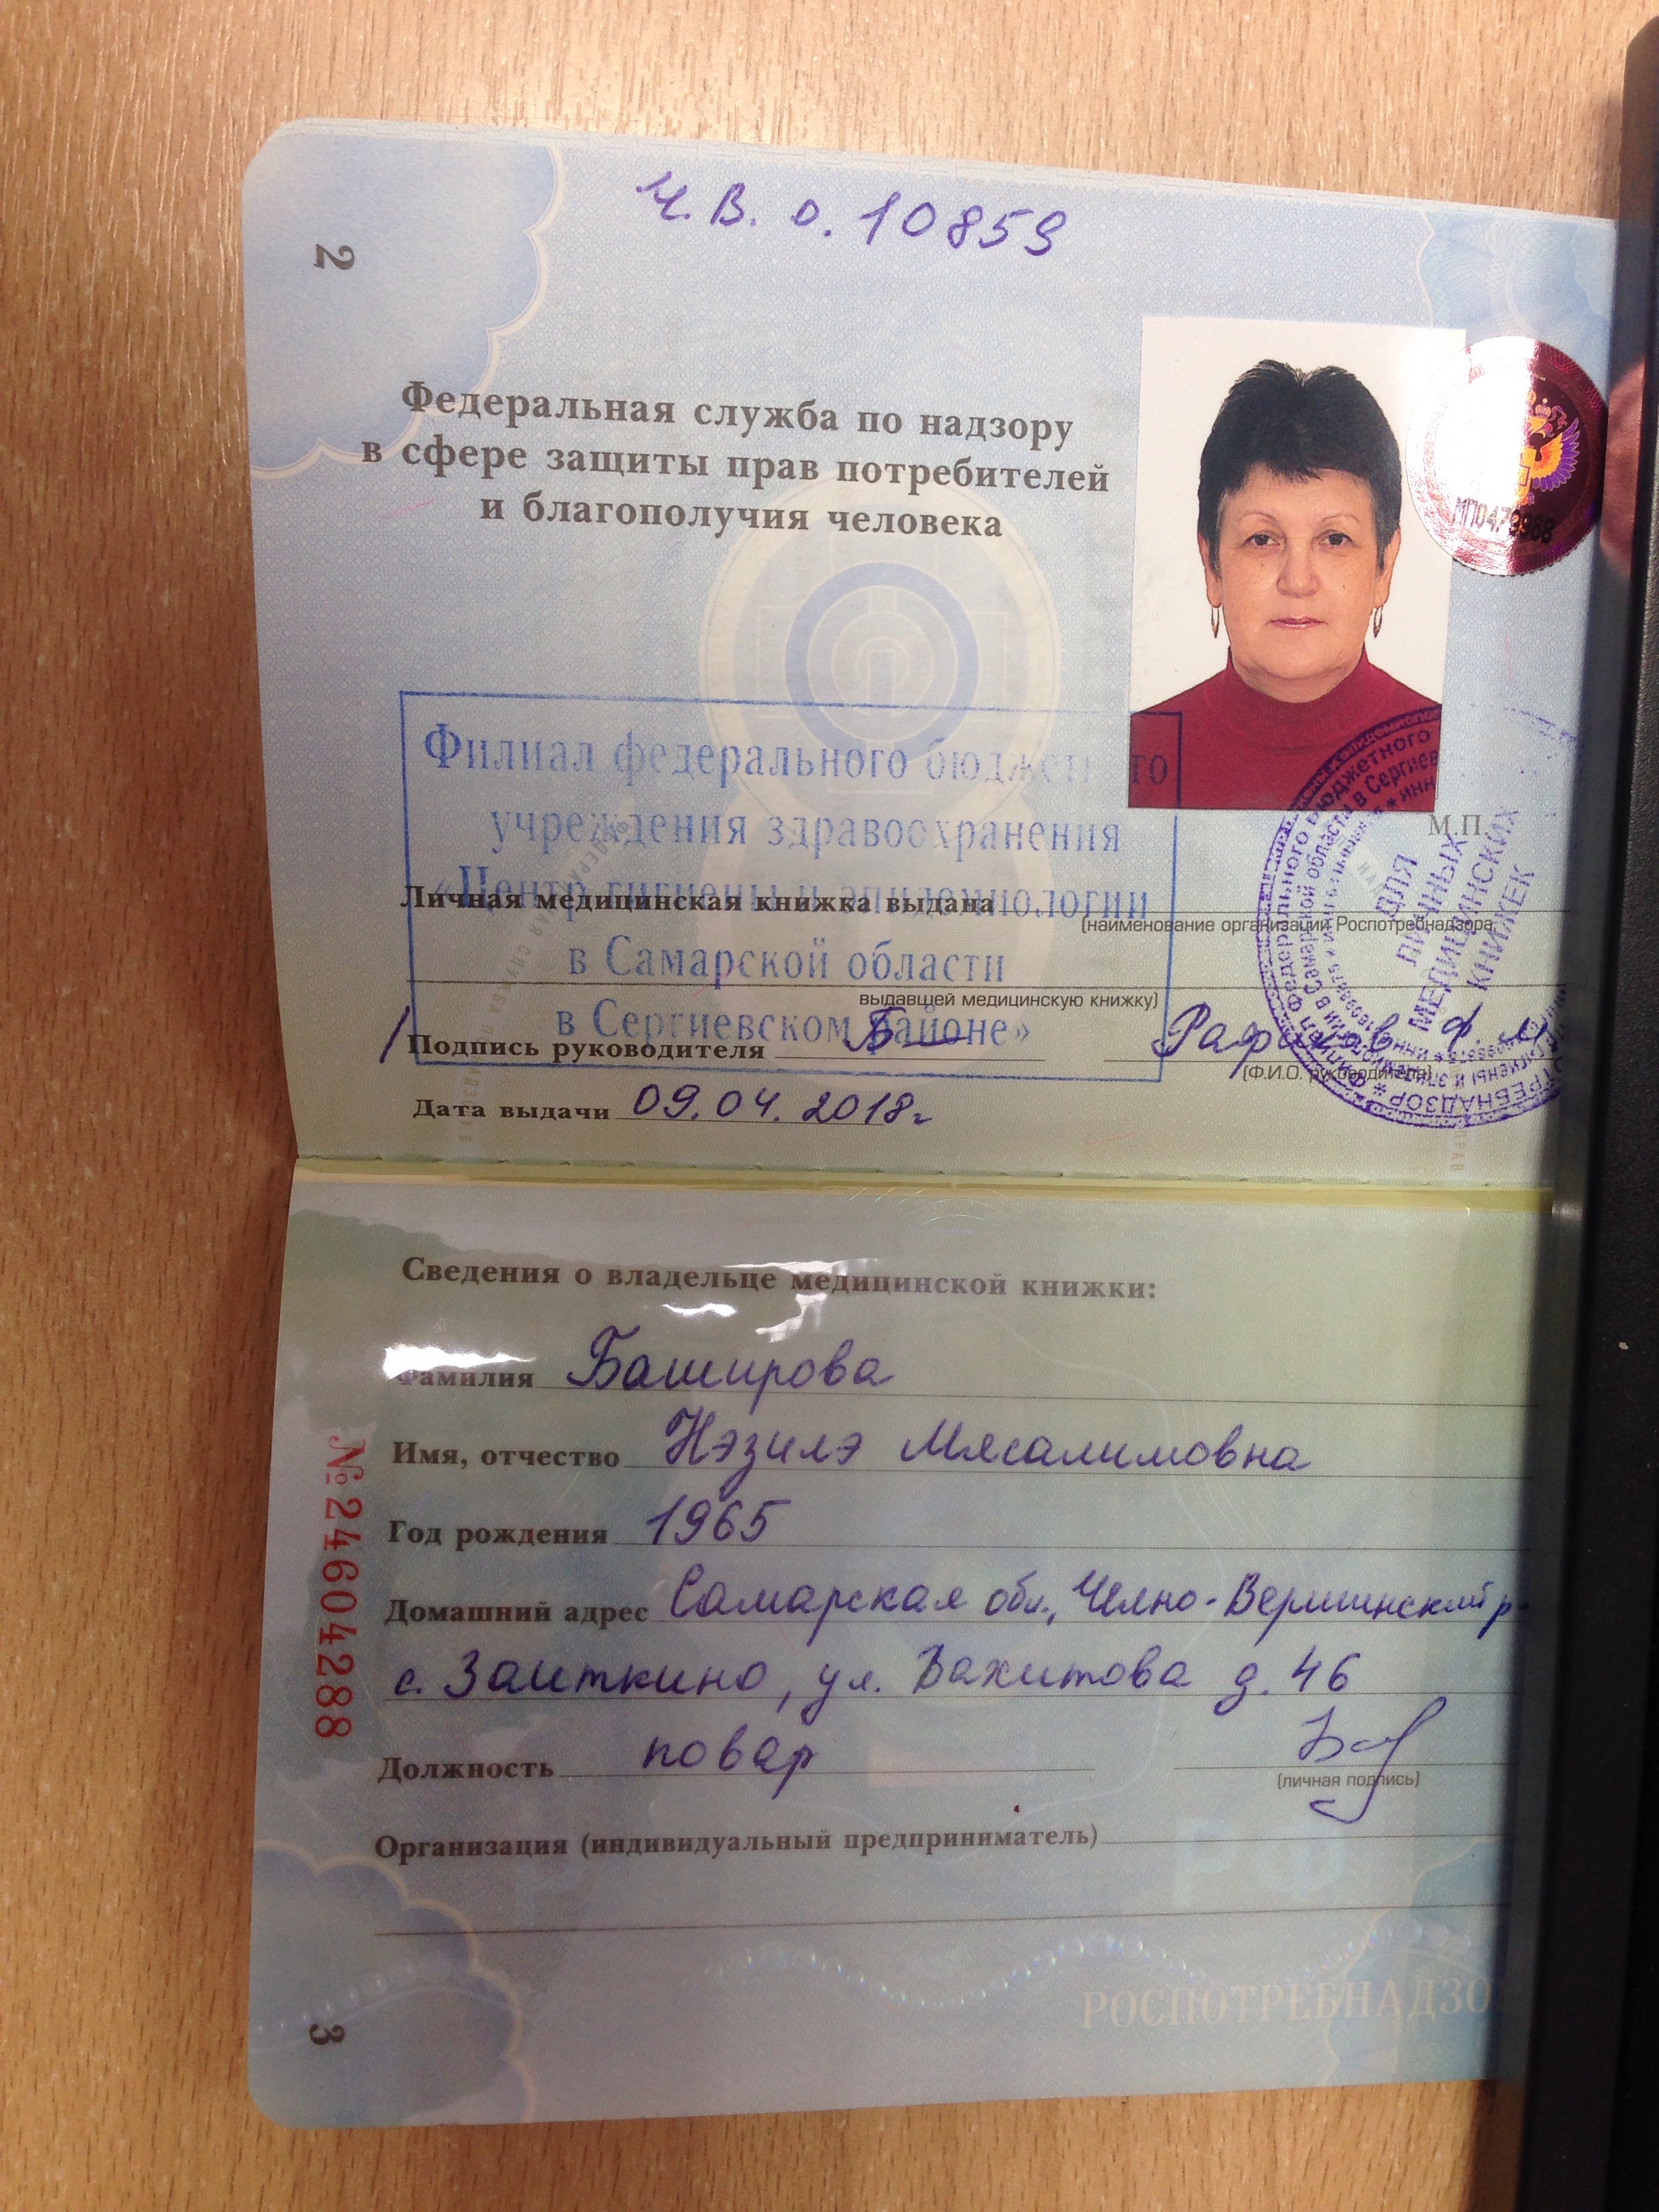 Ч.В. о. 10859
2
Федеральная служба по надзору
в сфере защиты прав потребителей
и благополучия человека
МП0479968
Филиал федерального бюджетного
учреждения здравоохранения
«Центр гигиены и эпидемиологии
в Самарской области
в Сергиевском районе»
М.П.
ДЛЯ
ЛИЧНЫХ
МЕДИЦИНСКИХ
КНИЖЕК
Личная медицинская книжка выдана
(наименование организации Роспотребнадзора,
выдавшей медицинскую книжку)
Подпись руководителя Рафиков Ф. М
(Ф.И.О. руководителя)
Дата выдачи 09.04.2018г
Сведения о владельце медицинской книжки:
Фамилия Баширова
Имя, отчество Нэзилэ Мясалимовна
Год рождения 1965
Домашний адрес Самарская обл., Челно-Вершинский р-
с. Заиткино, ул. Вахитова д. 46
Должность повар
(личная подпись)
Организация (индивидуальный предприниматель)
№ 24604288
РОСПОТРЕБНАДЗО
3